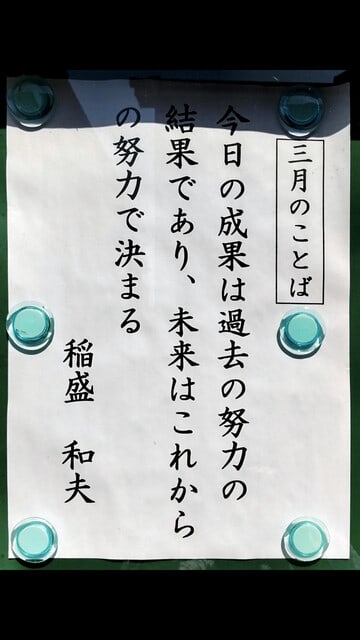 三月のことば
今日の成果は過去の努力の
結果であり、未来はこれから
の努力で決まる
稲盛 和夫